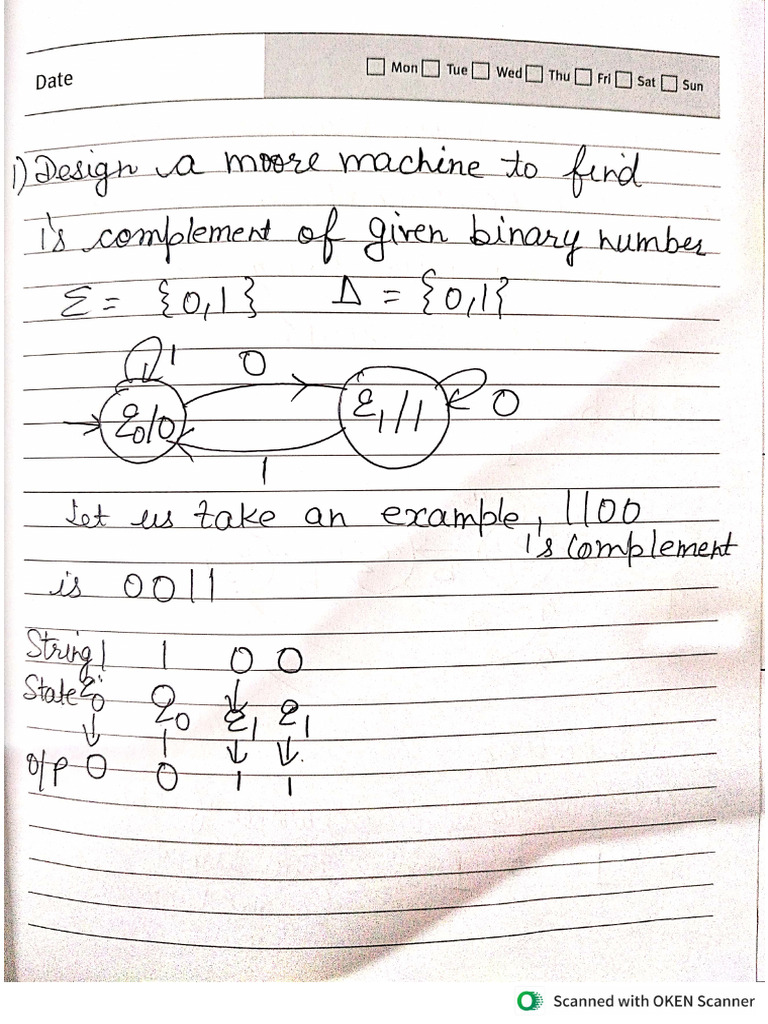 Date
Mon Tue Wed Thu Fri Sat Sun
1) Design a moore machine to find
1's complement of given binary number
Σ = {0,1} Δ = {0,1}
1 0
q0/0 q1/1 0
1
Let us take an example, 1100
1's complement
is 0011
String 1 1 0 0
State q0 q0 q1 q1
O/P 0 0 1 1
Scanned with OKEN Scanner